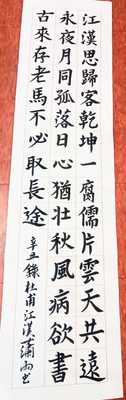 江漢思歸客乾坤一腐儒片雲天共遠
永夜月同孤落日心猶壯秋風病欲書
古來存老馬不必取長途 辛丑錄杜甫江漢 蕭雨书